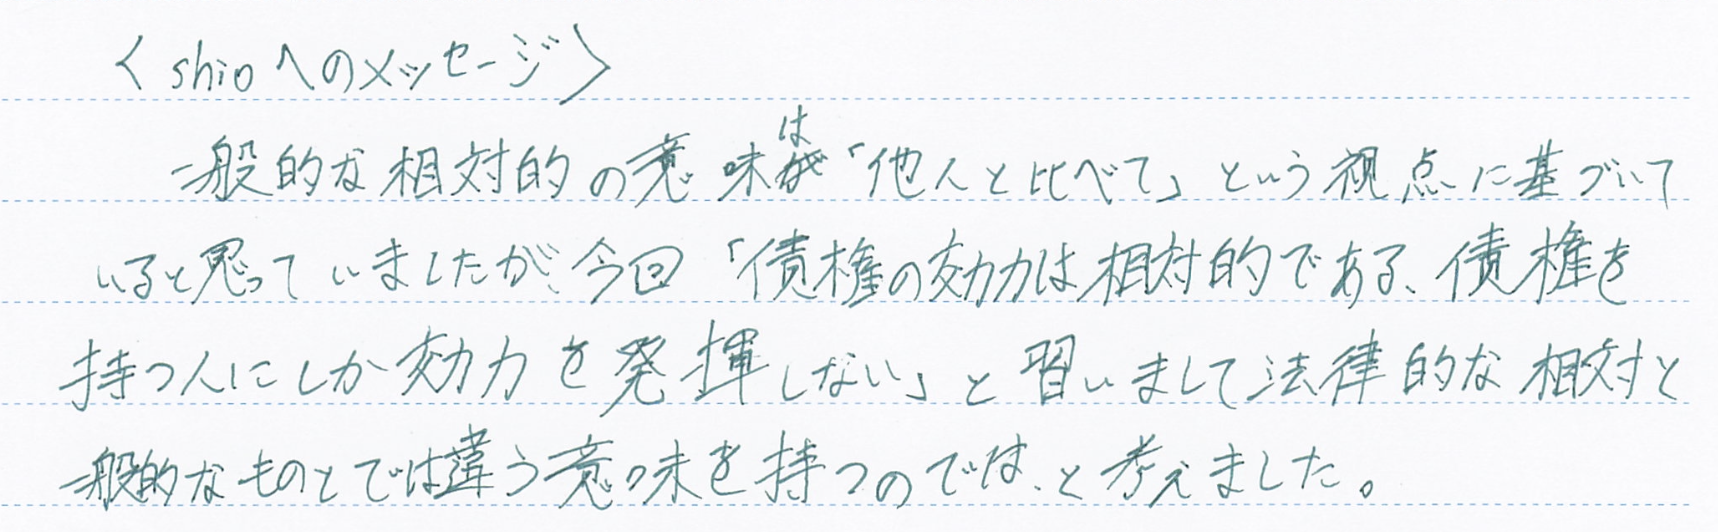 〈shioへのメッセージ〉
一般的な相対的の意味は「他人と比べて」という視点に基づいて
いると思っていましたが、今回「債権の効力は相対的である、債権を
持つ人にしか効力を発揮しない」と習いまして法律的な相対と
一般的なものとでは違う意味を持つのでは、と考えました。